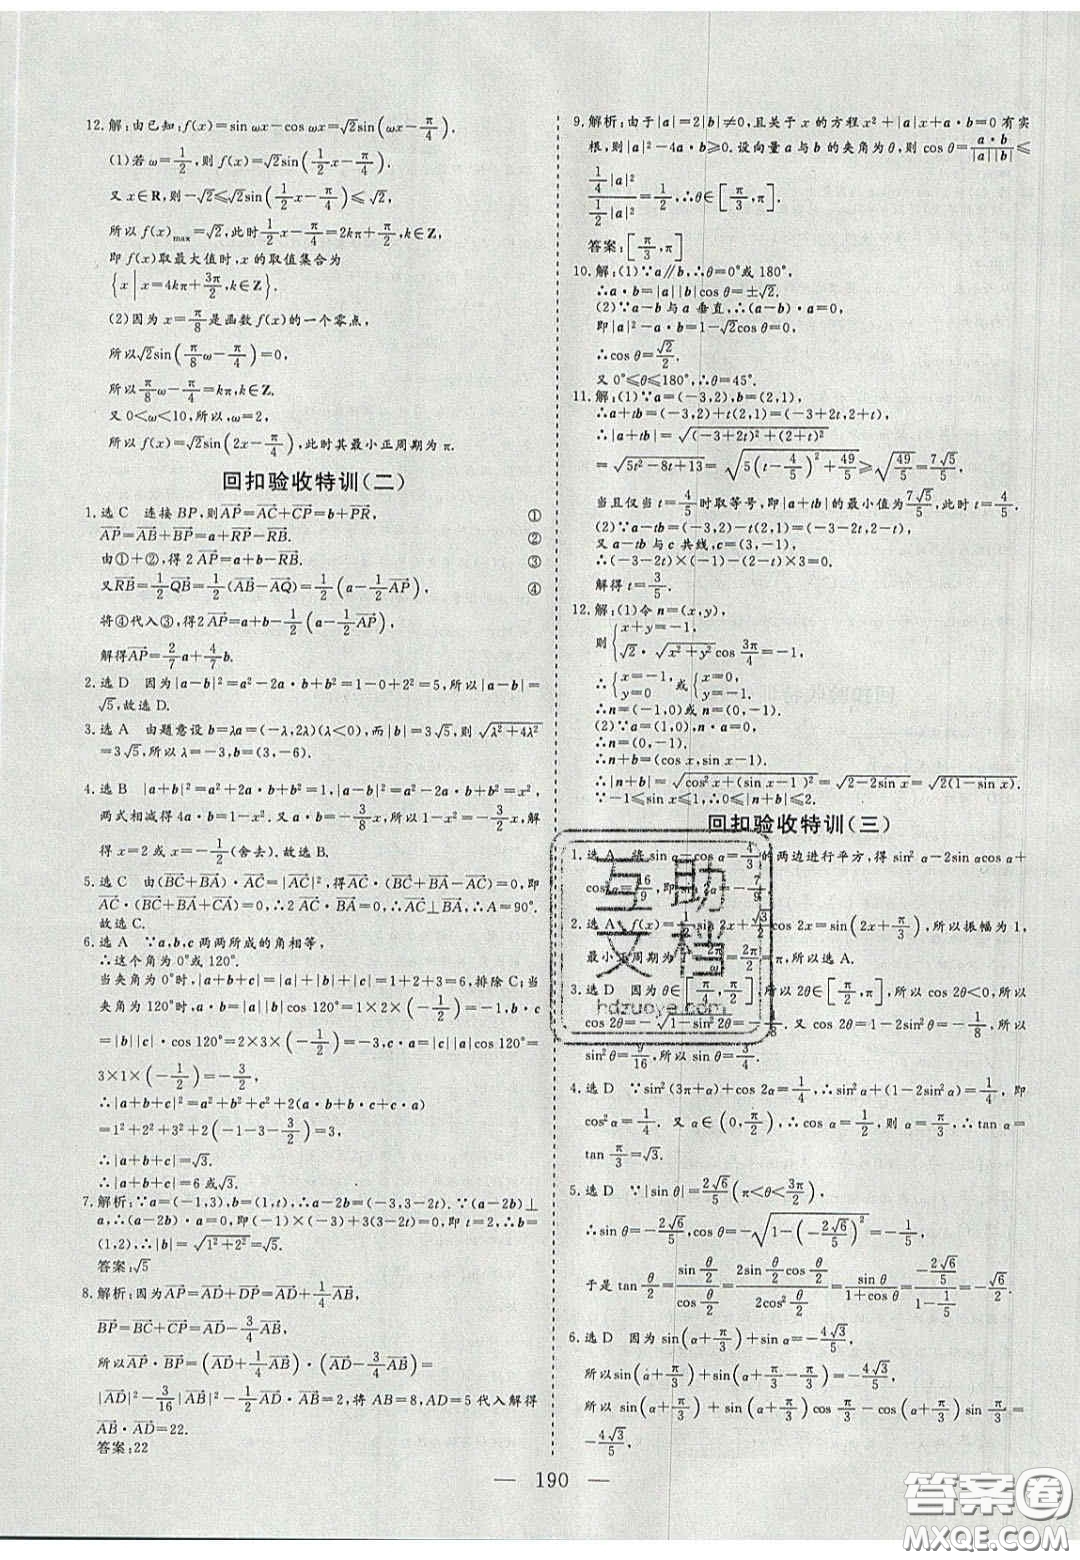 12.解:由已知:f(x)=sin ωx-cos ωx=√2sin(ωx-π/4).
(1)若ω=1/2,则 f(x)=√2sin(1/2x-π/4).
又 x∈R,则-√2≤√2sin(1/2x-π/4)≤√2,
所以 f(x)max=√2,此时1/2x-π/4=2kπ+π/2,k∈Z,
即 f(x)取最大值时,x 的取值集合为
{x|x=4kπ+3π/2,k∈Z}.
(2)因为 x=π/8是函数 f(x)的一个零点,
所以√2sin(π/8ω-π/4)=0,
所以π/8ω-π/4=kπ,k∈Z.
又 0<ω<10,所以,ω=2,
所以 f(x)=√2sin(2x-π/4),此时其最小正周期为 π.
回扣验收特训(二)
1.选 C 连接 BP,则AP=AC+CP=b+PR, ①
AP=AB+BP=a+RP-RB. ②
由①+②,得 2AP=a+b-RB. ③
又RB=1/2QB=1/2(AB-AQ)=1/2(a-1/2AP), ④
将④代入③,得2AP=a+b-1/2(a-1/2AP),
解得AP=2/7a+4/7b.
2.选 D 因为|a-b|²=a²-2a·b+b²=1-0+2²=5,所以|a-b|=
√5,故选 D.
3.选 A 由题意设 b=λa=(-λ,2λ)(λ<0),而|b|=3√5,则 √(λ²+4λ²)
=3√5,所以 λ=-3,b=(3,-6).
4.选 B |a+b|²=a²+2a·b+b²=1,|a-b|²=a²-2a·b+b²=x²,
两式相减得 4a·b=1-x². 又 a·b=-3/2x,所以 1-x²=-3/2x,解
得 x=2 或 x=-1/2(舍去).故选 B.
5.选 C 由(BC+BA)·AC=|AC|²,得AC·(BC+BA-AC)=0,即
AC·(BC+BA+CA)=0,∴2AC·BA=0,∴AC⊥BA,∴A=90°.
故选 C.
6.选 A ∵a,b,c 两两所成的角相等,
∴这个角为 0°或 120°.
当夹角为 0°时,|a+b+c|=|a|+|b|+|c|=1+2+3=6,排除 C;当
夹角为 120°时,a·b=|a||b|cos 120°=1×2×(-1/2)=-1,b·c
=|b||c|·cos 120°=2×3×(-1/2)=-3,a·c=|a||c|cos 120°=
3×1×(-1/2)=-3/2,
∴|a+b+c|²=a²+b²+c²+2(a·b+b·c+a·c)
=1²+2²+3²+2(-1-3-3/2)=3,
∴|a+b+c|=√3.
∴|a+b+c|=6 或√3.
7.解析:∵a=(-1,3),b=(1,t),∴a-2b=(-3,3-2t).∵(a-2b)⊥
a,∴(a-2b)·a=0,即(-1)×(-3)+3(3-2t)=0,即 t=2,∴b=
(1,2),∴|b|=√(1²+2²)=√5.
答案:√5
8.解析:因为AP=AD+DP=AD+1/4AB,
BP=BC+CP=AD-3/4AB,
所以AP·BP=(AD+1/4AB)·(AD-3/4AB)=
|AD|²-3/16|AB|²-1/2AD·AB=2,将 AB=8,AD=5 代入解得
AB·AD=22.
答案:22
9.解析:由于|a|=2|b|≠0,且关于 x 的方程 x²+|a|x+a·b=0 有实
根,则|a|²-4a·b≥0.设向量 a 与 b 的夹角为 θ,则 cos θ=a·b/|a||b|≤
(1/4|a|²)/(1/2|a|²)=1/2,∴θ∈[π/3,π].
答案:[π/3,π]
10.解:(1)∵a∥b,∴θ=0°或 180°,
∴a·b=|a||b|cos θ=±√2.
(2)∵a-b 与 a 垂直,∴(a-b)·a=0,
即|a|²-a·b=1-√2cos θ=0,
∴cos θ=√2/2.
又 0°≤θ≤180°,∴θ=45°.
11.解:(1)∵a=(-3,2),b=(2,1),
∴a+tb=(-3,2)+t(2,1)=(-3+2t,2+t),
∴|a+tb|=√((-3+2t)²+(2+t)²)
=√(5t²-8t+13)=√(5(t-4/5)²+49/5)≥√(49/5)=7√5/5,
当且仅当 t=4/5时取等号,即|a+tb|的最小值为7√5/5,此时 t=4/5.
(2)∵a-tb=(-3,2)-t(2,1)=(-3-2t,2-t),
又 a-tb 与 c 共线,c=(3,-1),
∴(-3-2t)×(-1)-(2-t)×3=0.
解得 t=3/5.
12.解:(1)令 n=(x,y),
则{x+y=-1, √2·√(x²+y²)cos 3π/4=-1,
∴{x=-1, y=0 或{x=0, y=-1.
∴n=(-1,0)或 n=(0,-1).
(2)∵a=(1,0),n·a=0.
∴n=(0,-1).
∴n+b=(cos x,sin x-1).
∴|n+b|=√(cos²x+(sin x-1)²)=√(2-2sin x)=√(2(1-sin x)).
∵-1≤sin x≤1,∴0≤|n+b|≤2.
回扣验收特训(三)
1.选 A 将 sin α-cos α=4/3的两边进行平方,得 sin²α-2sin αcos α+
cos²α=16/9,即 sin 2α=-7/9.
2.选 A f(x)=1/2sin 2x+√3/2cos 2x=sin(2x+π/3),所以振幅为 1,
最小正周期为 T=2π/ω=2π/2=π,所以选 A.
3.选 D 因为 θ∈[π/4,π/2],所以 2θ∈[π/2,π],所以 cos 2θ<0,所以
cos 2θ=-√(1-sin²2θ)=-1/8.又 cos 2θ=1-2sin²θ=-1/8,所以
sin²θ=9/16,所以 sin θ=3/4.
4.选 D ∵sin²(3π+α)+cos 2α=1/4,∴sin²α+(1-2sin²α)=1/4,即
cos²α=1/4.又 α∈(0,π/2),∴cos α=1/2,则 α=π/3,∴tan α=
tan π/3=√3.
5.选 D ∵|sin θ|=2√6/5(π<θ<3π/2),
∴sin θ=-2√6/5,cos θ=-√(1-(-2√6/5)²)=-1/5,
于是 tan θ/2=(sin θ/2)/(cos θ/2)=(2sin θ/2cos θ/2)/(2cos²θ/2)=sin θ/(1+cos θ)=(-2√6/5)/(1-1/5)=-√6/2.
6.选 D 因为 sin(α+π/3)+sin α=-4√3/5,
所以sin(α+π/3)+sin(α+π/3-π/3)=-4√3/5,
所以 sin(α+π/3)+sin(α+π/3)cos π/3-cos(α+π/3)sin π/3=
-4√3/5,
190
互助
文档
hdzuoye.com
答案圈
MXQE.COM